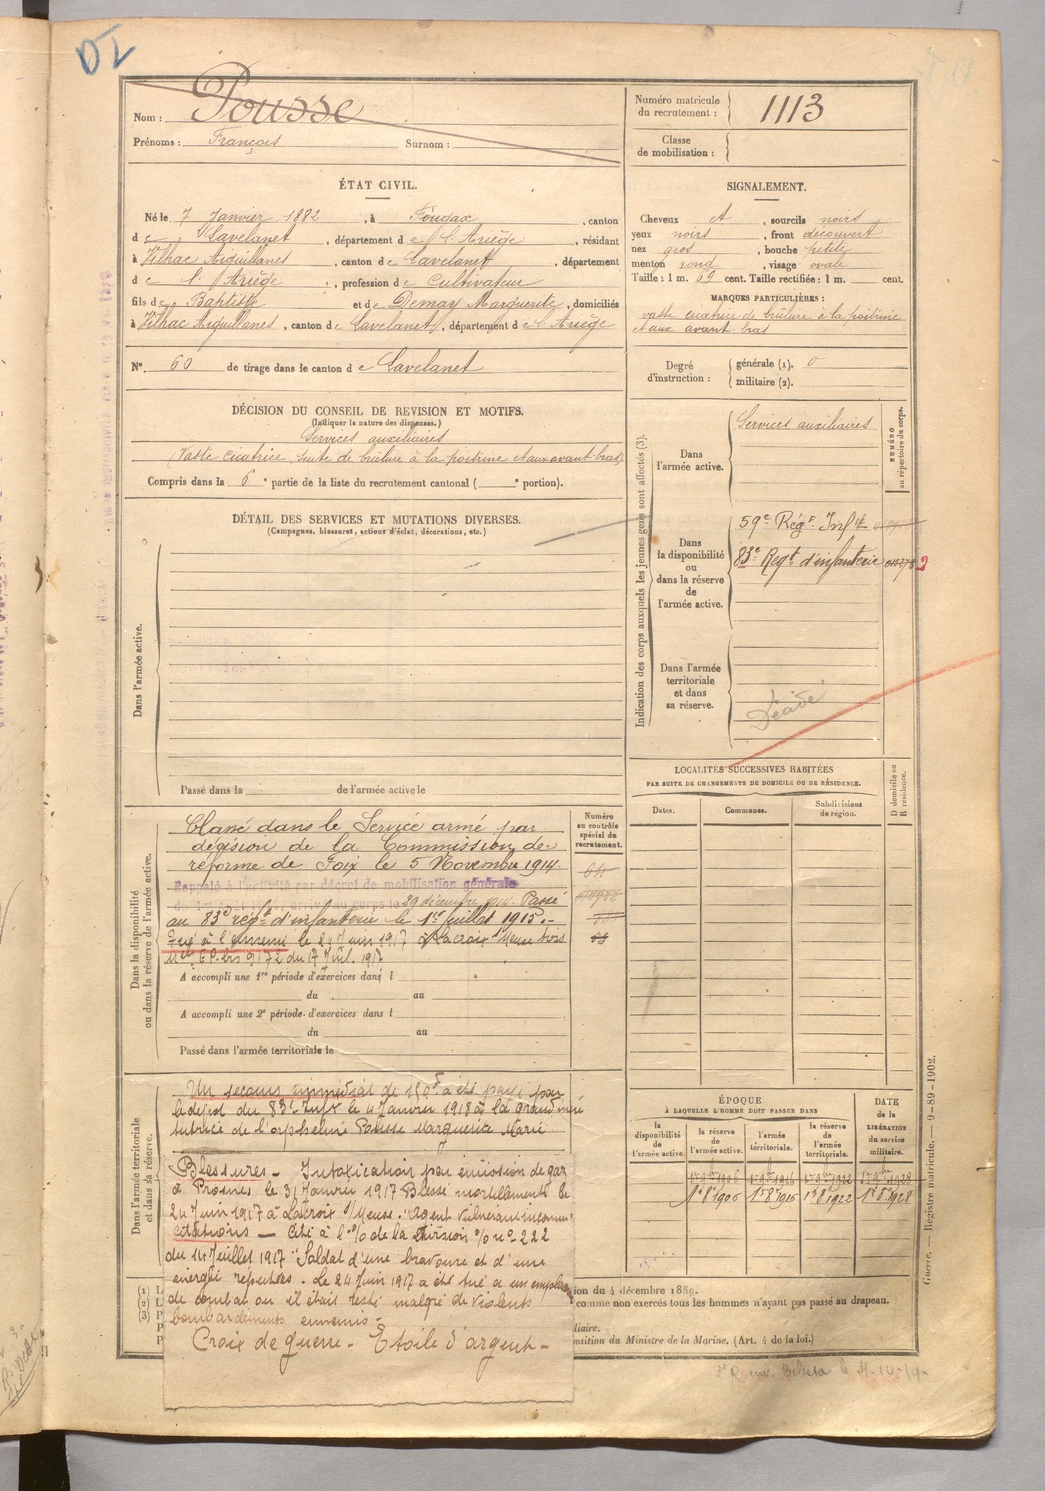 DI
Nom : Pousse
Prénoms : François Surnom :
Numéro matricule du recrutement : 1113
Classe de mobilisation :
ÉTAT CIVIL.
Né le 7 Janvier 1882, à Fougax, canton
d e Lavelanet, département d e l'Ariège, résidant
à Vilhac Aiguillanes, canton d e Lavelanet, département
d e l'Ariège, profession d e Cultivateur
fils d e Baptiste et d e Demay Marguerite, domiciliés
à Vilhac Aiguillanes, canton d e Lavelanet, département d e l'Ariège
N° 60 de tirage dans le canton d e Lavelanet
SIGNALEMENT.
Cheveux et, sourcils noirs
yeux noirs, front découvert
nez gros, bouche petite
menton rond, visage ovale
Taille : 1 m. 69 cent. Taille rectifiée : 1 m. cent.
MARQUES PARTICULIÈRES :
vaste cicatrice de brûlure à la poitrine
et aux avant bras
Degré d'instruction : générale (1). 0
militaire (2).
DÉCISION DU CONSEIL DE REVISION ET MOTIFS.
(Indiquer la nature des dispenses.)
Services auxiliaires
(Vaste cicatrice, suite de brûlure à la poitrine et aux avant-bras)
Compris dans la 6e partie de la liste du recrutement cantonal ( e portion).
DÉTAIL DES SERVICES ET MUTATIONS DIVERSES.
(Campagnes, blessures, actions d'éclat, décorations, etc.)
Dans l'armée active.
Passé dans la de l'armée active le
Indication des corps auxquels les jeunes gens sont affectés (3).
NUMÉRO au répertoire du corps.
Dans l'armée active.
Services auxiliaires
Dans la disponibilité ou dans la réserve de l'armée active.
59e Régt Infie
83e Regt d'infanterie
Dans l'armée territoriale et dans sa réserve.
Décédé
LOCALITÉS SUCCESSIVES HABITÉES
PAR SUITE DE CHANGEMENTS DE DOMICILE OU DE RÉSIDENCE.
Dates. Communes. Subdivisions de région. D domicile ou R résidence.
Dans la disponibilité ou dans la réserve de l'armée active.
Numéro au contrôle spécial du recrutement.
Classé dans le Service armé par
décision de la Commission de
réforme de Foix le 5 Novembre 1914.
Rappelé à l'activité par décret de mobilisation générale
arrivé au corps le 29 décembre 1914. Passé
au 83e régt d'infanterie le 1er Juillet 1915.
Tué à l'ennemi le 24 Juin 1917 à Lacroix s/ Meuse Avis
du 17 Juil. 1917
A accompli une 1re période d'exercices dans l
du au
A accompli une 2e période d'exercices dans l
du au
Passé dans l'armée territoriale le
Dans l'armée territoriale et dans sa réserve.
Un secours immédiat de 150f a été payé par
le dépôt du 83e Infie le 4 Janvier 1918 à la grand mère
tutrice de l'orpheline Pousse Marguerite Marie
Blessures - Intoxication par émission de gaz
à Prosnes le 31 Janvier 1917 Blessé mortellement le
24 Juin 1917 à Lacroix s/Meuse. Agent vulnérant inconnu
Citations - Cité à l'o/o de la Division o/o no 222
du 14 Juillet 1917 "Soldat d'une bravoure et d'une
énergie réputées. Le 24 Juin 1917 a été tué à un emplacemt
de combat où il était resté malgré de violents
bombardements ennemis.
Croix de guerre - Etoile d'argent -
ÉPOQUE
À LAQUELLE L'HOMME DOIT PASSER DANS
la disponibilité de l'armée active. la réserve de l'armée active. l'armée territoriale. la réserve de l'armée territoriale.
DATE de la LIBÉRATION du service militaire.
1er 9bre 1906 1er 9bre 1916 1er 9bre 1922 1er 9bre 1928
1er 8bre 1906 1er 8bre 1916 1er 8bre 1922 1er 8bre 1928
(1) L
(2) L
(3) L
P
P
P
ion du 4 décembre 1889.
comme non exercés tous les hommes n'ayant pas passé au drapeau.
iliaire.
position du Ministre de la Marine. (Art. 4 de la loi.)
Guerre. — Registre matricule. — 9-89-1902.